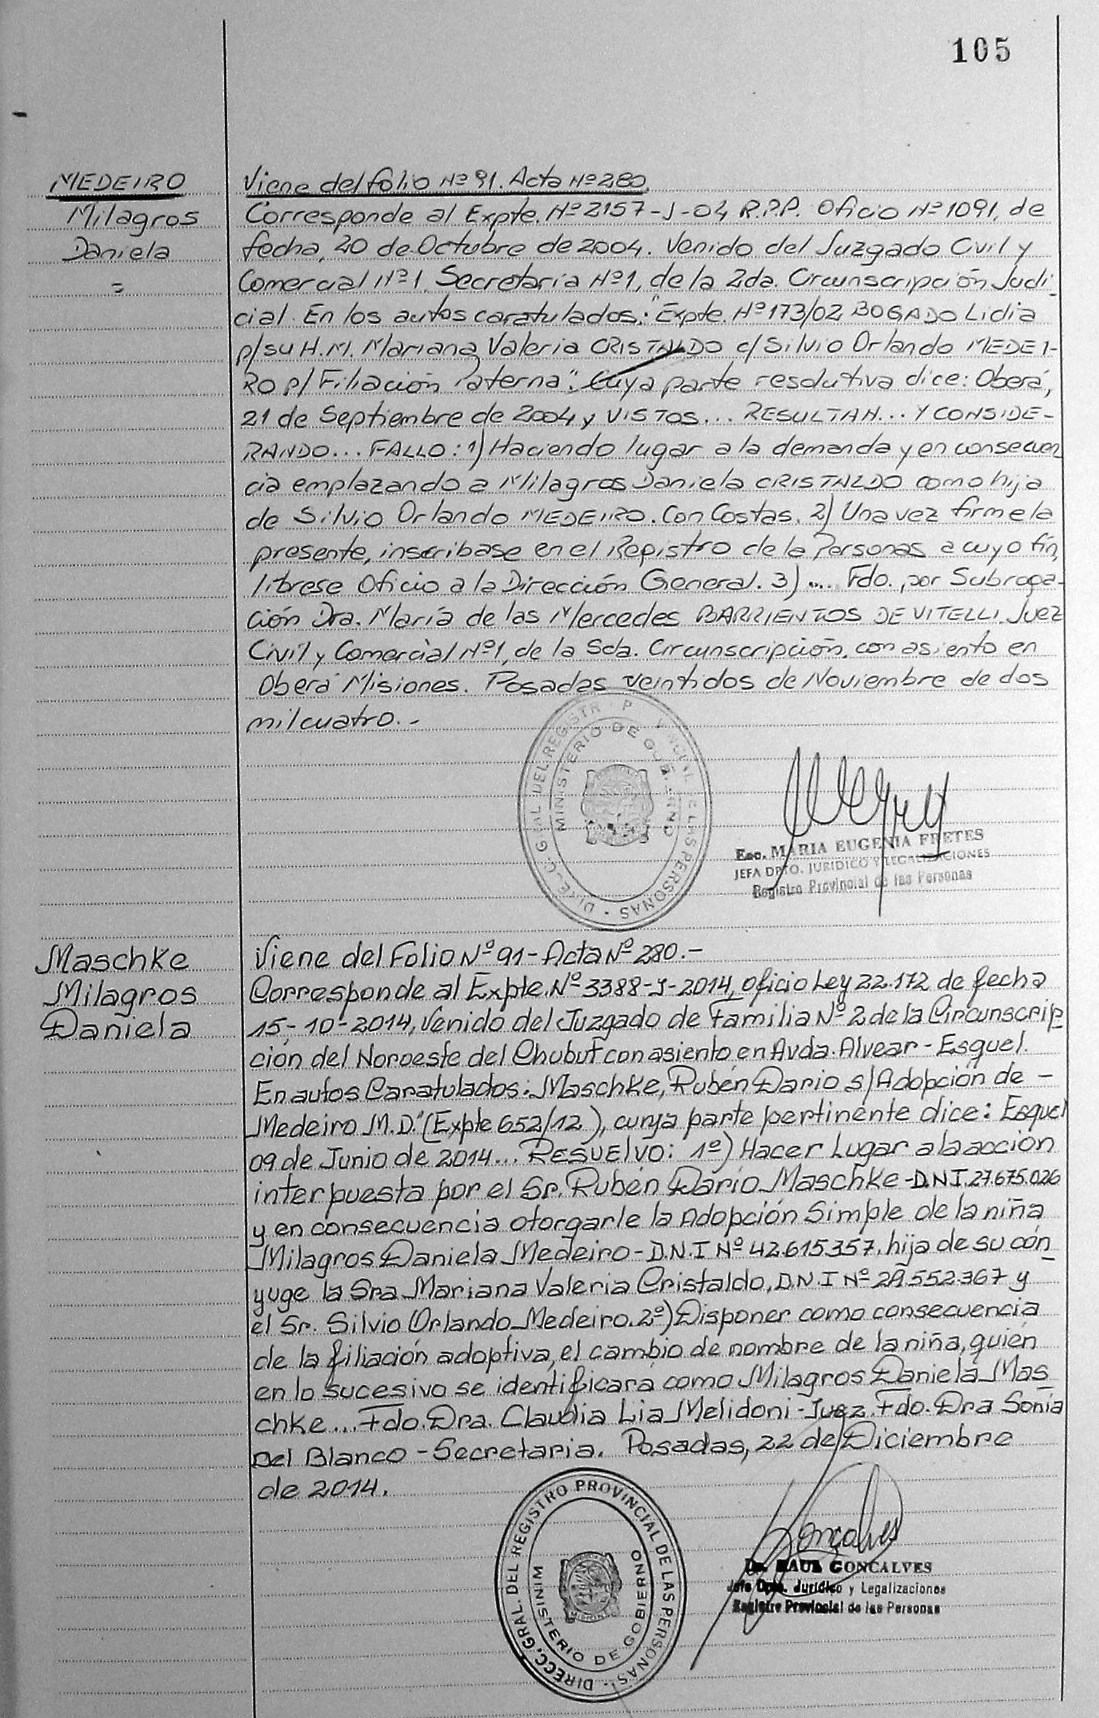 105
MEDEIRO
Milagros
Daniela
=
Viene del folio Nº 91. Acta Nº 280.
Corresponde al Expte. Nº 2157-J-04 R.P.P. Oficio Nº 1091, de
fecha, 20 de Octubre de 2004. Venido del Juzgado Civil y
Comercial Nº 1. Secretaría Nº 1, de la 2da. Circunscripción Judi-
cial. En los autos caratulados: "Expte. Nº 173/02 BOGADO Lidia
p/su H.M. Mariana Valeria CRISTALDO c/Silvio Orlando MEDEI-
RO p/ Filiación Paterna". Cuya parte resolutiva dice: Oberá,
21 de Septiembre de 2004 y VISTOS... RESULTAN... Y CONSIDE-
RANDO... FALLO: 1) Haciendo lugar a la demanda y en consecuen
cia emplazando a Milagros Daniela CRISTALDO como hija
de Silvio Orlando MEDEIRO. Con Costas. 2) Una vez firme la
presente, inscribase en el Registro de la Personas a cuyo fin,
librese Oficio a la Dirección General. 3).... Fdo. por Subroga-
ción Dra. María de las Mercedes BARRIENTOS DE VITELLI. Juez
Civil y Comercial Nº 1, de la Sda. Circunscripción, con asiento en
Oberá Misiones. Posadas veintidos de Noviembre de dos
mil cuatro.-
DIRECC. GRAL DEL REGISTR P LAS PERSONAS
MINISTERIO DE GOB ERNO
Esc. MARIA EUGENIA FRETES
JEFA DPTO. JURIDICO Y LEGALIZACIONES
Registro Provincial de las Personas
Maschke
Milagros
Daniela
Viene del Folio Nº 91 - Acta Nº 280.-
Corresponde al Expte. Nº 3388-J-2014, oficio Ley 22.172 de fecha
15-10-2014, venido del Juzgado de Familia Nº 2 de la Circunscrip
ción del Noroeste del Chubut con asiento en Avda. Alvear - Esquel.
En autos Caratulados: Maschke, Rubén Dario s/Adopción de -
Medeiro M.D." (Expte 652/12), cuya parte pertinente dice: Esquel
09 de Junio de 2014... RESUELVO: 1º) Hacer Lugar a la acción
interpuesta por el Sr. Rubén Darío Maschke - D.N.I. 27.675.026
y en consecuencia otorgarle la Adopción Simple de la niña
Milagros Daniela Medeiro - D.N.I Nº 42.615.357, hija de su cón
yuge la Sra Mariana Valeria Cristaldo, D.N.I Nº 29.552.367 y
el Sr. Silvio Orlando Medeiro. 2º) Disponer como consecuencia
de la filiación adoptiva, el cambio de nombre de la niña, quién
en lo sucesivo se identificará como Milagros Daniela Mas
chke... Fdo. Dra. Claudia Lia Melidoni - Juez. Fdo. Dra Sonia
Del Blanco - Secretaria. Posadas, 22 de Diciembre
de 2014.
DIRECC. GRAL. DEL REGISTRO PROVINCIAL DE LAS PERSONAS
MINISTERIO DE GOBIERNO
Goncalves
Dr. RAUL GONCALVES
Jefe Dpto. Jurídico y Legalizaciones
Registro Provincial de las Personas